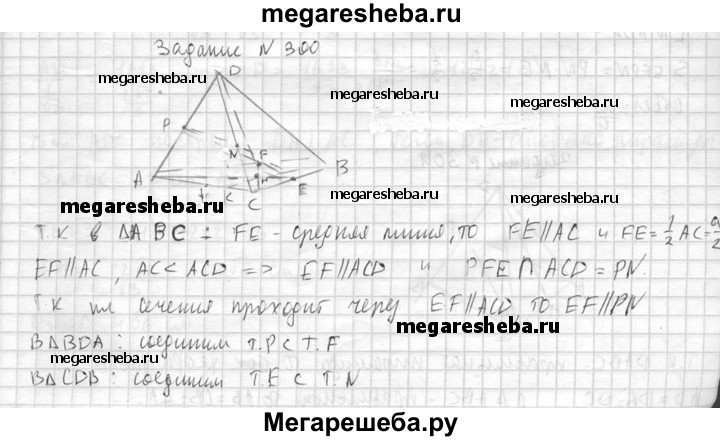 megaresheba.ru
Задание N 300
D
megaresheba.ru
megaresheba.ru
megaresheba.ru
P
N
F
B
A
K
H
E
C
megaresheba.ru
megaresheba.ru
megaresheba.ru
Т.К в ΔABC : FE - средняя линия, то FE∥AC и FE=1/2 AC=a/2
EF∥AC, AC< ACD => EF∥ACD и PFE∩ACD=PN.
Т.К пл сечения проходит через EF∥ACD, то EF∥PN
megaresheba.ru
BΔBDA : соединим т.P с т.F
megaresheba.ru
BΔCDB : соединим т.E с т.N
megaresheba.ru
Мегарешеба.ру